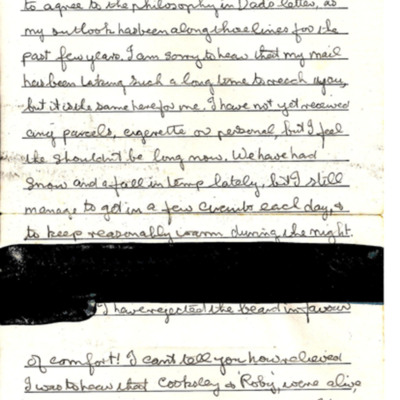 to agree to the philosophy in Dads letter, as
my outlook has been along those lines for the
past few years. I am sorry to hear that my mail
has been taking such a long time to reach you,
but it is the same here for me. I have not yet received
any parcels, cigarette or personal, but I feel
like shouldn't be long now. We have had
snow and a fall in temp lately, but I still
manage to get in a few circuits each day, &
to keep reasonably warm during the night.
I have rejected the beard in favour
of comfort! I can't tell you how relieved
I was to hear that Cooksley & 'Roby', were alive,